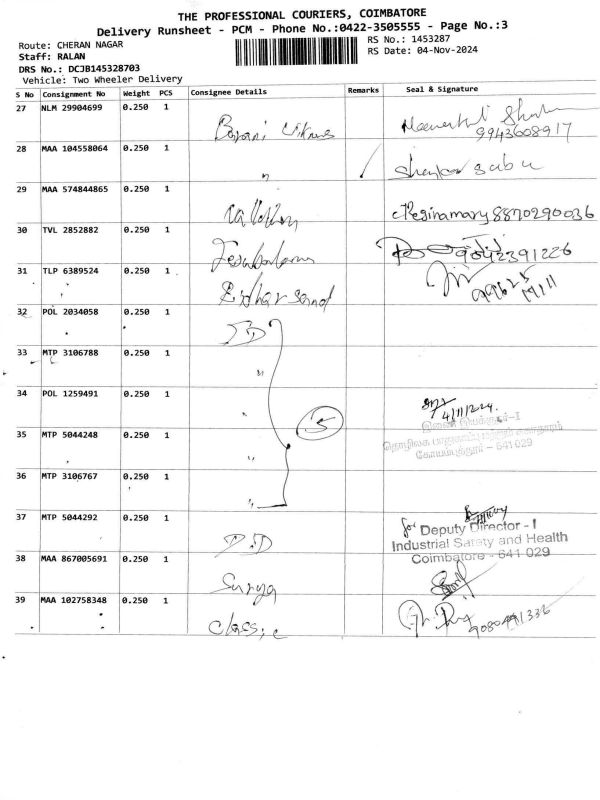 THE PROFESSIONAL COURIERS, COIMBATORE
Delivery Runsheet - PCM - Phone No.:0422-3505555 - Page No.:3
Route: CHERAN NAGAR
RS No.: 1453287
Staff: RALAN
RS Date: 04-Nov-2024
DRS No.: DCJB145328703
Vehicle: Two Wheeler Delivery
S No Consignment No Weight PCS Consignee Details Remarks Seal & Signature
27 NLM 29904699 0.250 1
9943608917
28 MAA 104558064 0.250 1
"
29 MAA 574844865 0.250 1
Reginamary 8870290036
30 TVL 2852882 0.250 1
9042391226
31 TLP 6389524 0.250 1
32 POL 2034058 0.250 1
33 MTP 3106788 0.250 1
"
34 POL 1259491 0.250 1
"
4/11/2024
5
இணை இயக்குநர்-I
35 MTP 5044248 0.250 1
"
தொழிலக பாதுகாப்பு மற்றும் சுகாதாரம்
கோயம்புத்தூர் - 641 029
36 MTP 3106767 0.250 1
"
37 MTP 5044292 0.250 1
D.D
for Deputy Director - I
Industrial Safety and Health
Coimbatore - 641 029
38 MAA 867005691 0.250 1
Surya
39 MAA 102758348 0.250 1
Classic